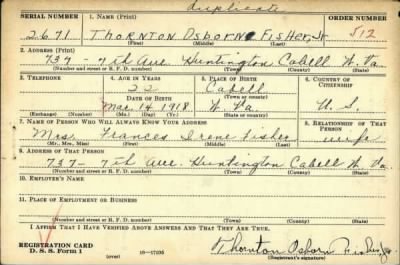 duplicate
SERIAL NUMBER 1. NAME (Print) ORDER NUMBER
2671 THORNTON OSBORNE FISHER, Jr 512
(First) (Middle) (Last)
2. ADDRESS (Print)
737 - 7th Ave. Huntington Cabell W. Va
(Number and street or R. F. D. number) (Town) (County) (State)
3. TELEPHONE 4. AGE IN YEARS 5. PLACE OF BIRTH 6. COUNTRY OF CITIZENSHIP
22 Cabell
DATE OF BIRTH (Town or county)
Mar. 14 1918 W. Va. U. S.
(Exchange) (Number) (Mo.) (Day) (Yr.) (State or country)
7. NAME OF PERSON WHO WILL ALWAYS KNOW YOUR ADDRESS 8. RELATIONSHIP OF THAT PERSON
Mrs. Frances Irene Fisher wife
(Mr., Mrs., Miss) (First) (Middle) (Last)
9. ADDRESS OF THAT PERSON
737 - 7th Ave. Huntington Cabell W. Va
(Number and street or R. F. D. number) (Town) (County) (State)
10. EMPLOYER'S NAME
11. PLACE OF EMPLOYMENT OR BUSINESS
(Number and street or R. F. D. number) (Town) (County) (State)
I AFFIRM THAT I HAVE VERIFIED ABOVE ANSWERS AND THAT THEY ARE TRUE.
REGISTRATION CARD
D. S. S. Form 1 (over) Thornton Osborn Fisher Jr.
(Registrant's signature)